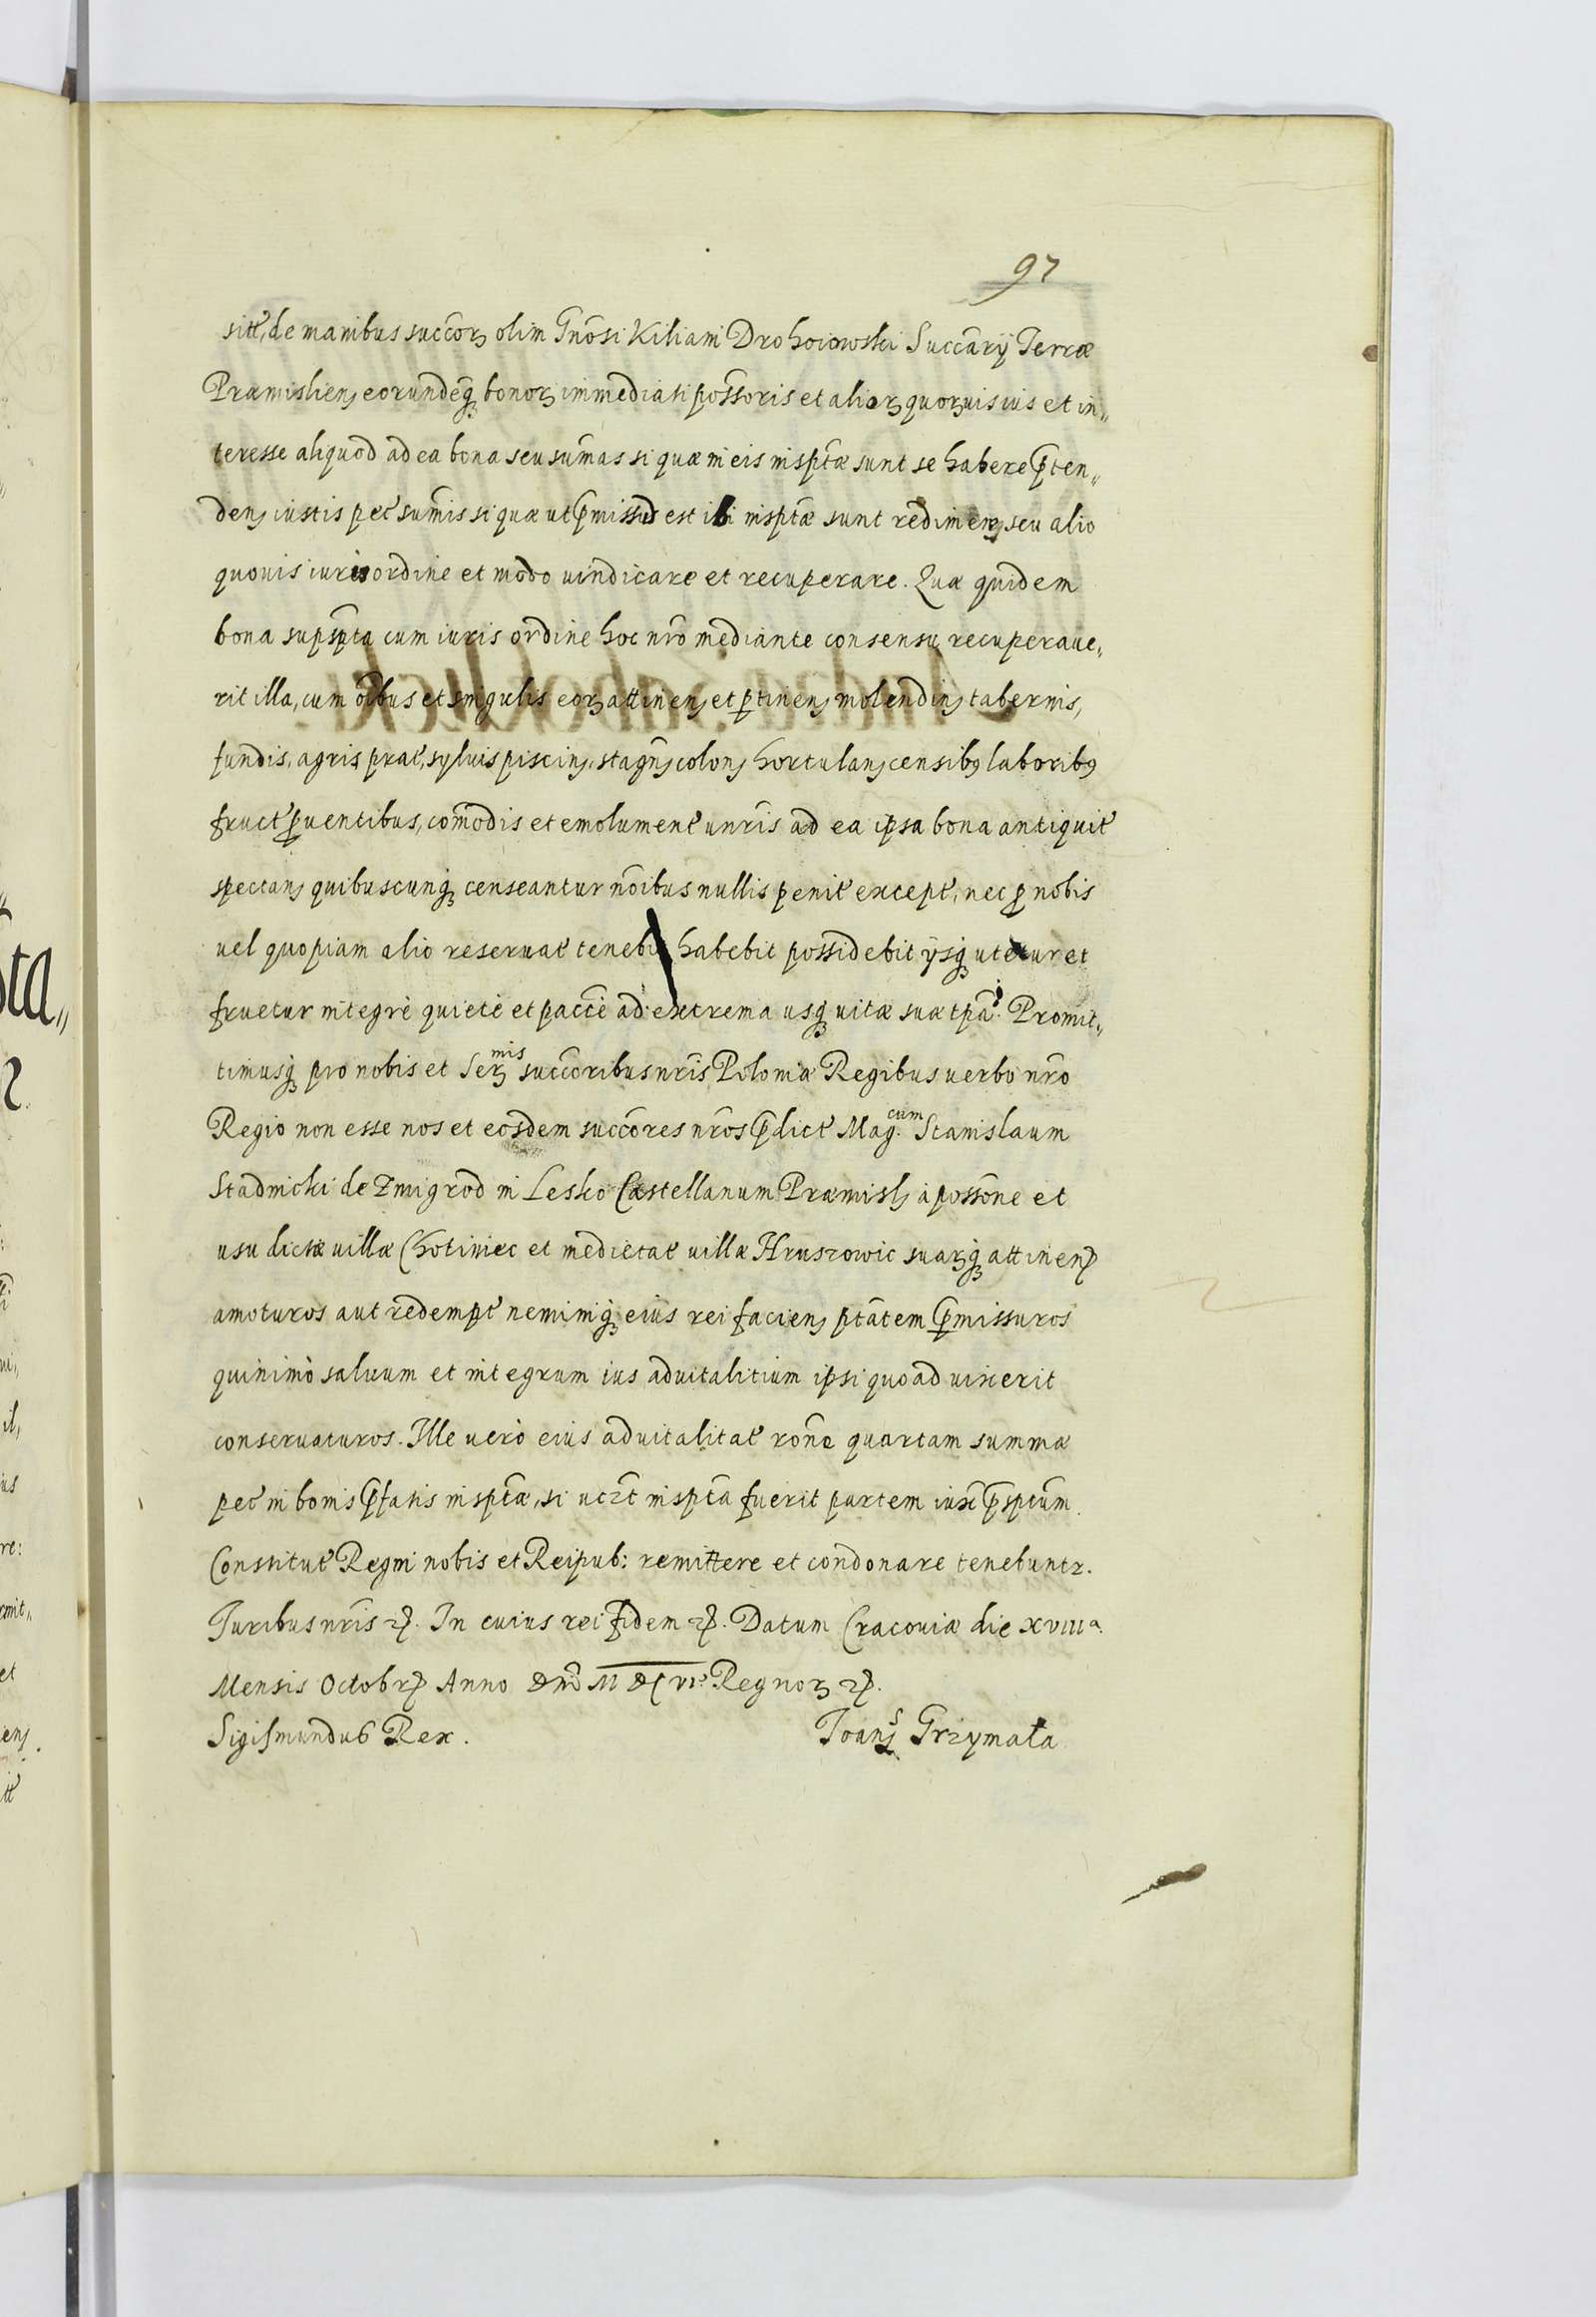 97
sitt, de manibus succõꝝ olim Gnõsi Kiliani Drohoiowski Succãrij Terræ
Præmisliens eorundẽq bonoꝝ immediati possõris et alioꝝ quoꝝuis ius et in„
teresse aliquod ad ea bona seu sum̃as si quæ in eis insptæ sunt se habere p̃ten„
dens iustis pec sum̃is si quæ ut p̃missũ est ibi insptæ sunt redimen seu alio
quouis iuris ordine et modo uindicare et recuperare. Quæ quidem
bona supspta cum iuris ordine hoc nrõ mediante consensu recuperaue„
rit illa, cum oĩbus et singulis eoꝝ attinens et ptinens molendins tabernis,
fundis, agris prat, syluis piscins, stagns colons hortulans censibꝰ laboribꝰ
fruct ꝓuentibus, com̃odis et emolument unr̃is ad ea ipsa bona antiquit
spectans quibuscunq censeantur nõibus nullis penit except, nec ꝓ nobis
uel quopiam alio reseruat tenebit habebit possidebit ijsq utetur et
fruetur integrè quietè et paccẽ ad extrema usq uitæ suæ tpã. Promit„
timusq pro nobis et Ser mis succõribus nr̃is Poloniæ Regibus uerbo nrõ
Regio non esse nos et eosdem succõres nrõs p̃dict Mag. cum Stanislaum
Stadnicki de Zmigrod in Lesko Castellanum Præmisls à possõne et
usu dictæ uillæ Chotiniec et medietat uillæ Hruszowic suaꝝq attinen
amoturos aut redempt neminiq eius rei faciens ptãtem p̃missuros
quinimò saluum et integrum ius aduitalitium ipsi quoad uixerit
conseruaturos. Ille uerò eius aduitalitat rõne quartam summæ
pec in bonis p̃fatis insptæ, si uczt inspta fuerit partem iux p̃sptum
Constitut Regni nobis et Reipub: remittere et condonare tenebuntr.
Juribus nr̃is etc. In cuius rei fidem etc. Datum Cracouiæ die XVIIIa.
Mensis Octobr Anno Dnĩ M DC VIo Regnoꝝ etc.
Sigismundus Rex. Joans Grzymała